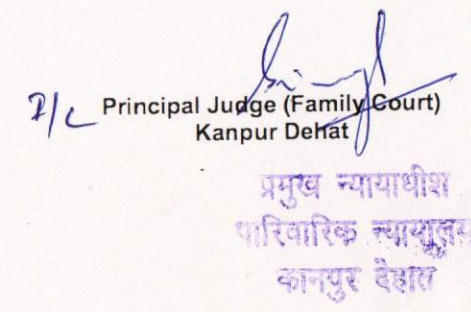 I/c Principal Judge (Family Court)
Kanpur Dehat
प्रमुख न्यायाधीश
पारिवारिक न्यायालय
कानपुर देहात